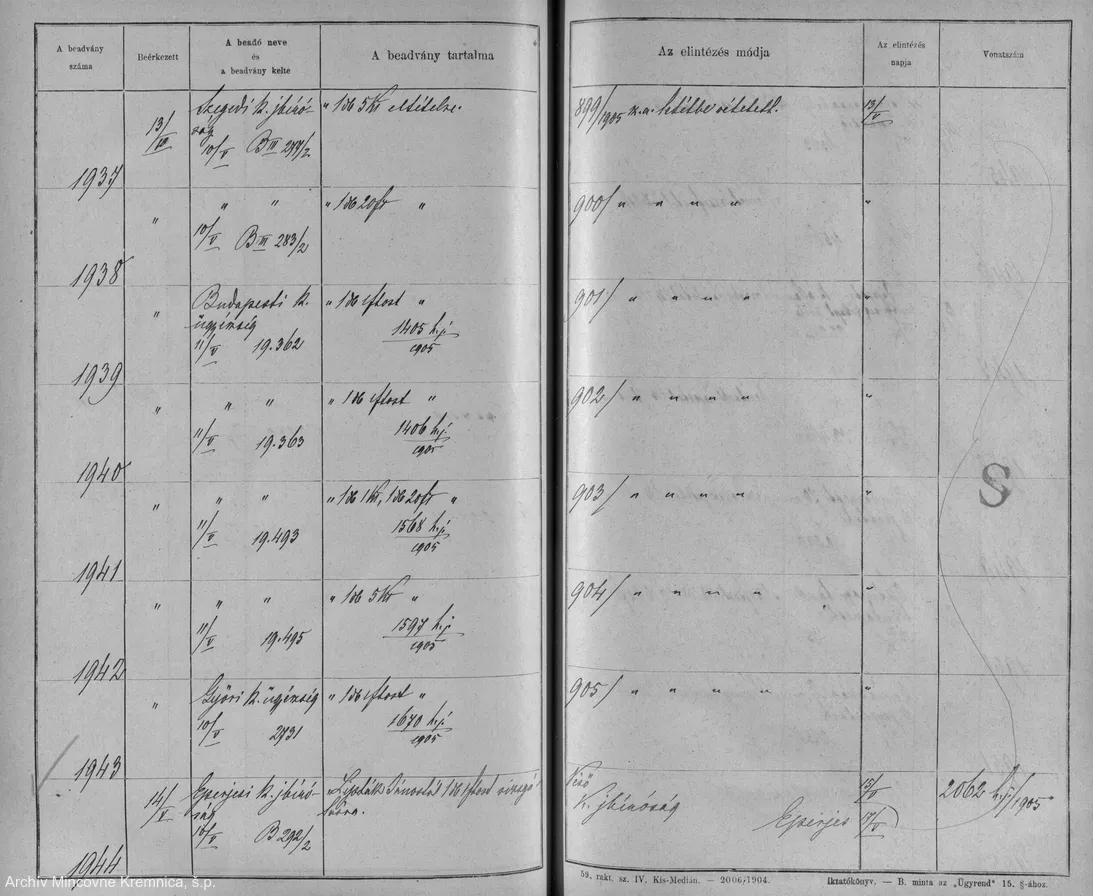 A beadvány
száma
Beérkezett
A beadó neve
és
a beadvány kelte
A beadvány tartalma
Az elintézés módja
Az elintézés
napja
Vonatszám
1937
13/V
Szegedi k. jbíró-
ság
10/V B III 277/2
" 1 db 5 Kr eltétele.
899/1905 sz. a. letétbe vétetett.
13/V
1938
" " "
10/V B III 283/2
" 1 db 20 fr "
900/ " " " "
"
1939
"
Budapesti k.
ügyészség
11/V 19.362
" 1 db 1 ftost "
1405 h.j.
1905
901/ " " " "
"
1940
" " "
11/V 19.363
" 1 db 1 ftost "
1406 h.j.
1905
902/ " " " "
"
1941
" " "
11/V 19.493
" 1 db 1 Kr, 1 db 20 fr "
1568 h.j.
1905
903/ " " " "
"
1942
" " "
11/V 19.495
" 1 db 5 Kr "
1597 h.j.
1905
904/ " " " "
"
1943
"
Győri k. ügyészség
10/V 2731
" 1 db 1 ftost "
1670 h.j.
1905
905/ " " " "
"
1944
14/V
Eperjesi k. jbíró-
ság
10/V B 292/2
1 db 1 ftost
K. jbíróság
Eperjes
15/V
17/V
2062 h.j./1905
S
59. rakt. sz. IV. Kis-Medián. — 2006/1904.
Iktatókönyv. — B. minta az „Ügyrend" 15. §-ához.
Archív Mincovne Kremnica, š.p.